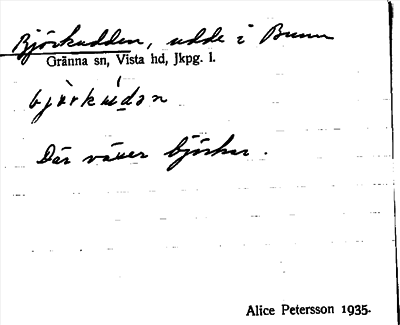 Björkudden, udde i Bunn
Gränna sn, Vista hd, Jkpg. l.
bjö̀rkúdən
Där växer björkar.
Alice Petersson 1935.